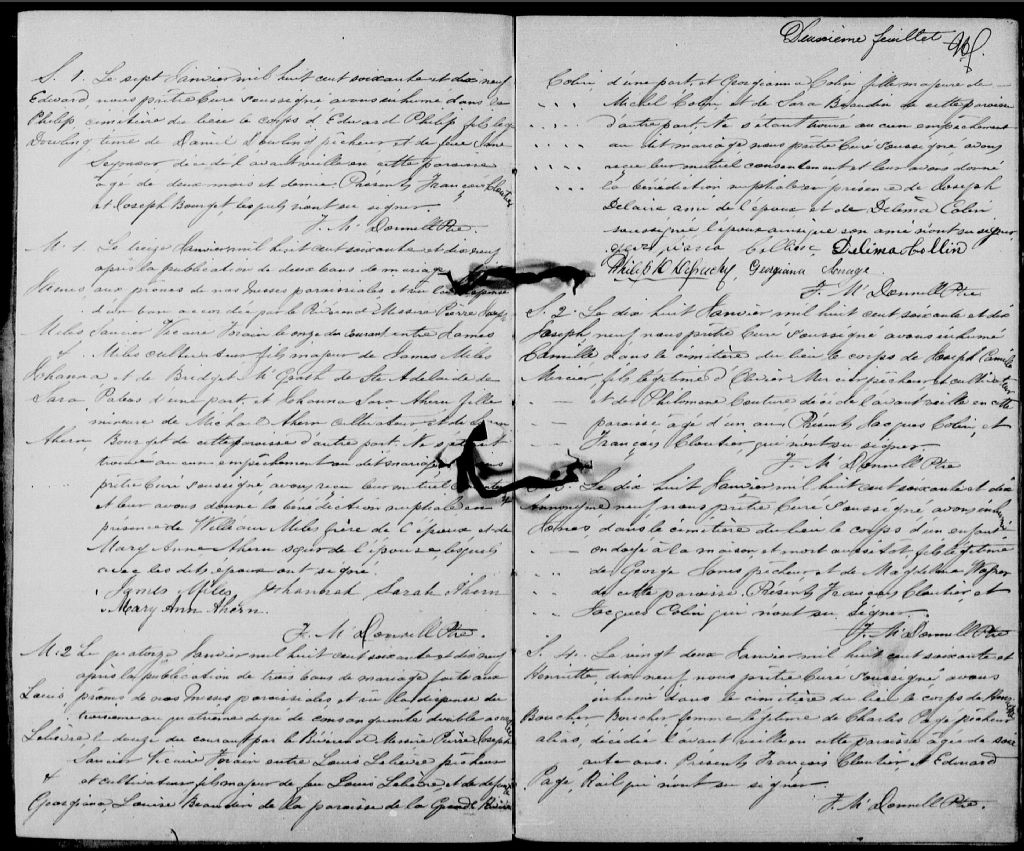 S. 1. Le sept Janvier mil huit cent soixante et dix neuf
Edward, nous prêtre Curé soussigné avons inhumé dans le
Philip cimetière du lieu le corps d'Edward Philip fils lég
Dowling time de Daniel Dowling pêcheur et de feue Jane
Seymour décédé l'avant veille en cette paroisse
âgé de deux mois et demie. Présents François Cloutier
et Joseph Bourget, lesquels n'ont su signer.
F. McDonnell Ptre.
M. 1. Le treize Janvier mil huit cent soixante et dix neuf
après la publication de deux bans de mariage
James, aux prônes de nos Messes paroissiales et vu la dispense
d'un ban accordée par le Révérend Messire Pierre Joseph
Miles Saucier Vicaire Forain le onze du courant entre James
& Miles cultivateur fils majeur de James Miles
Johanna et de Bridget McGrath de Ste Adelaide de
Sara Pabos d'une part, et Johanna Sara Ahern fille
mineure de Michael Ahern cultivateur et de
Ahern, Bourget de cette paroisse d'autre part. Ne s'étant
trouvé aucun empêchement au dit mariage nous
prêtre Curé soussigné, avons reçu leur mutuel
et leur avons donné la bénédiction nuptiale en
présence de William Miles frère de l'époux et de
Mary Anne Ahern sœur de l'épouse, lesquels
avec les dits époux ont signé.
James Miles, Johannah Sarah Ahern
Mary Ann Ahern.
F. McDonnell Ptre.
M. 2 Le quatorze Janvier mil huit cent soixante et dix neuf
après la publication de trois bans de mariage faite aux
Louis, prônes de nos Messes paroissiales et vu la dispense du
troisième au quatrième degré de consanguinité double
Lelièvre le douze du courant par le Révérend Messire Pierre Joseph
Saucier Vicaire Forain entre Louis Lelièvre pêcheur
& et cultivateur, fils majeur de feu Louis Lelièvre, et de
Georgiana, Louise Beaudin de la paroisse de la Grande Rivière
Deuxième feuillet
Colin, d'une part, et Georgiana Colin fille majeure de
Michel Colin et de Sara Beaudin de cette paroisse
d'autre part. Ne s'étant trouvé aucun empêchement
au dit mariage nous prêtre Curé soussigné avons
reçu leur mutuel consentement et leur avons donné
la bénédiction nuptiale en présence de Joseph
Delaire ami de l'époux et de Delima Colin
soussignée l'épouse ainsi que son ami n'ont su signer
Delima Collin
Georgiana
F. McDonnell Ptre
S. 2. Le dix huit Janvier mil huit cent soixante et dix
Joseph, neuf nous prêtre Curé soussigné avons inhumé
Camille dans le cimetière du lieu le corps de Joseph Camille
Mercier, fils légitime d'Olivier Mercier pêcheur et cultivateur
et de Philomène Couture décédé l'avant veille en cette
paroisse âgé d'un an. Présents Jacques Colin, et
François Cloutier, qui n'ont su signer.
F. McDonnell Ptre
S. 3. Le dix huit Janvier mil huit cent soixante et dix
neuf nous prêtre Curé soussigné avons inhumé
dans le cimetière du lieu le corps d'un enfant
ondoyé à la maison, et mort aussitôt, fils légitime
de George pêcheur et de Magdeleine
de cette paroisse. Présents François Cloutier, et
Jacques Colin qui n'ont su signer.
F. McDonnell Ptre
S. 4. Le vingt deux Janvier mil huit cent soixante et
Henriette, dix neuf, nous prêtre Curé soussigné avons
inhumé dans le cimetière du lieu le corps de Henriette
Boucher Boucher femme légitime de Charles Pagé pêcheur
alias, décédée l'avant veille en cette paroisse âgée de soix
ante ans. Présents François Cloutier, & Edward
Page, Rail qui n'ont su signer.
F. McDonnell Ptre.